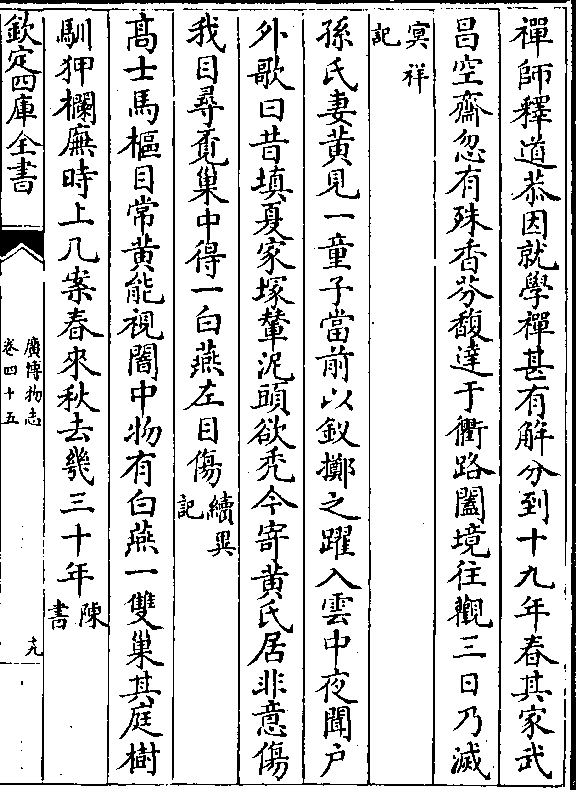 禪師釋道恭因就學禪甚有解分到十九年春其家武
昌空齋忽有殊香芬馥達于衢路闔境往觀三日乃滅
冥祥
記
孫氏妻黄見一童子當前以釵擲之躍入雲中夜聞户
外歌曰昔填夏家塚輦泥頭欲秃今寄黄氏居非意傷
我目尋覔巢中得一白燕左目傷續異
記
髙士馬樞目常黄能視闇中物有白燕一雙巢其庭樹
馴狎欄廡時上几案春來秋去幾三十年陳
書
欽定四庫全書
廣博物志
卷四十五
九